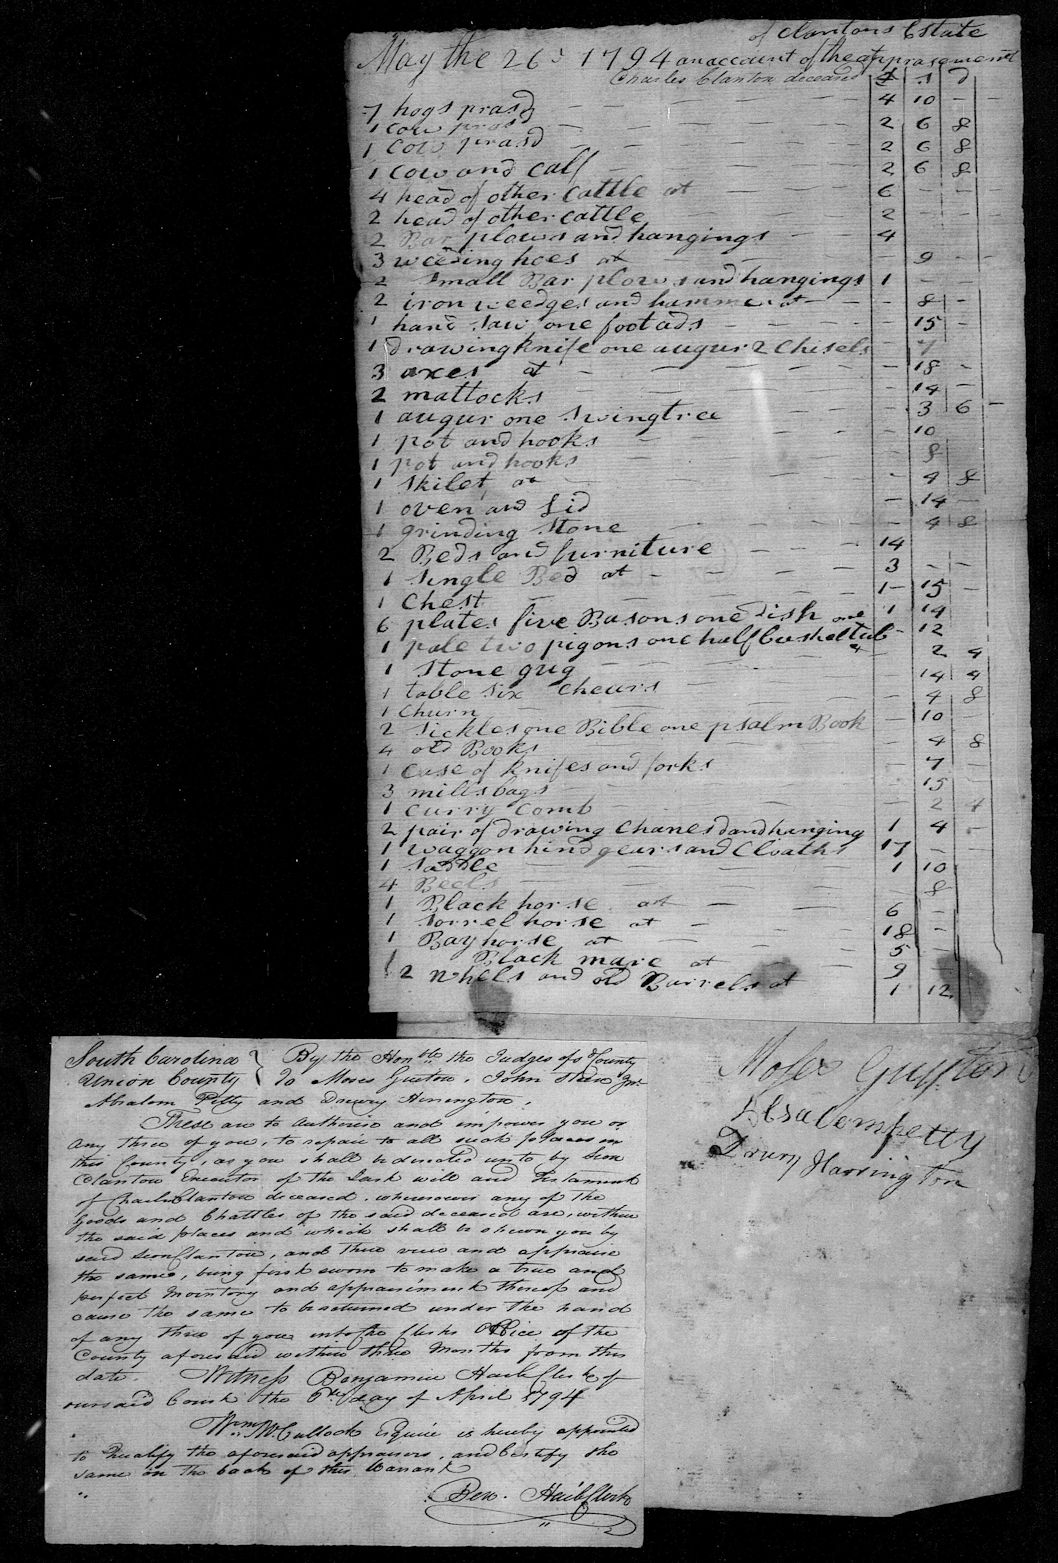 of Clantons Estate
May the 26 1794 an account of the apprasement
Charles Clanton deceased £ s d
7 hogs prasd — — — 4 10 — —
1 cow prasd — — — 2 6 8
1 cow prasd — — — 2 6 8
1 cow and calf — — — 2 6 8
4 head of other Cattle at — — — 6 — — —
2 head of other cattle — — — 2 — — —
2 Bar plows and hangings — — 4
3 weeding hoes at — — — 9 — —
2 Small Bar plows and hangings 1 — —
2 iron weedges and hammer at — — 8 —
1 hand saw one foot ads — — — 15 —
1 drawing knife one augur 2 Chisels — 7
3 axes at — — — 18 —
2 mattocks — — — 14 —
1 augur one Swingtree — — — 3 6 —
1 pot and hooks — — — 10
1 pot and hooks — — — 8
1 skilet at — — — 4 8
1 oven and Lid — 14 —
1 grinding Stone — — — 4 8
2 Beds and furniture — — — 14
1 Single Bed at — — — 3 — —
1 Chest — — — 1 15 —
6 plates five Basons one dish one 1 14
1 pale two pigons one half bushel tub — 12
1 Stone gug — — — 2 4
1 table six Cheurs — — — 14 4
1 Churn — — — 4 8
2 Sickles one Bible one psalm Book — 10 —
4 old Books — — — 4 8
1 Case of knifes and forks — — — 7 —
3 mills bags — — — 15
1 Curry Comb — — — 2 4
2 pair of drawing Chanes and hanging 1 4 —
1 waggon hind gears and Cloaths 17 —
1 Saddle — — — 1 10
4 Beels — — — 8
1 Black horse at — — — 6 —
1 Sorrel horse at — — — 18 —
1 Bay horse at — — — 5 —
1 Black mare at — — — 9
2 whels and old Barrels at 1 12
Moses Guyton
Absalem petty
Drury Harrington
South Carolina } By the Honble the Judges of sd County
Union County } To Moses Guiton, John Steen Jnr
Absalom Petty and Drewry Herrington.
These are to authorise and impower you or
any three of you, to repair to all such places in
this County, as you shall be directed unto by
Clanton Executor of the Last will and Testament
of Charles Clanton deceased, wheresoever any of the
goods and Chattles of the said deceased are, within
the said places and which shall be shewn you by
said Clanton, and there view and appraise
the same, being first sworn to make a true and
perfect Inventory and appraisement thereof and
cause the same to be returned under the hand
of any three of you into the Clerks Office of the
County aforesaid within three Months from this
date. Witness Benjamin Haile Clerk of
our said Court the 6th day of April 1794
Wm McCullock Esquire is hereby appointed
to Qualify the aforesaid appraisers, and Certify the
same on the back of this Warrant
Ben. Haile Clerk